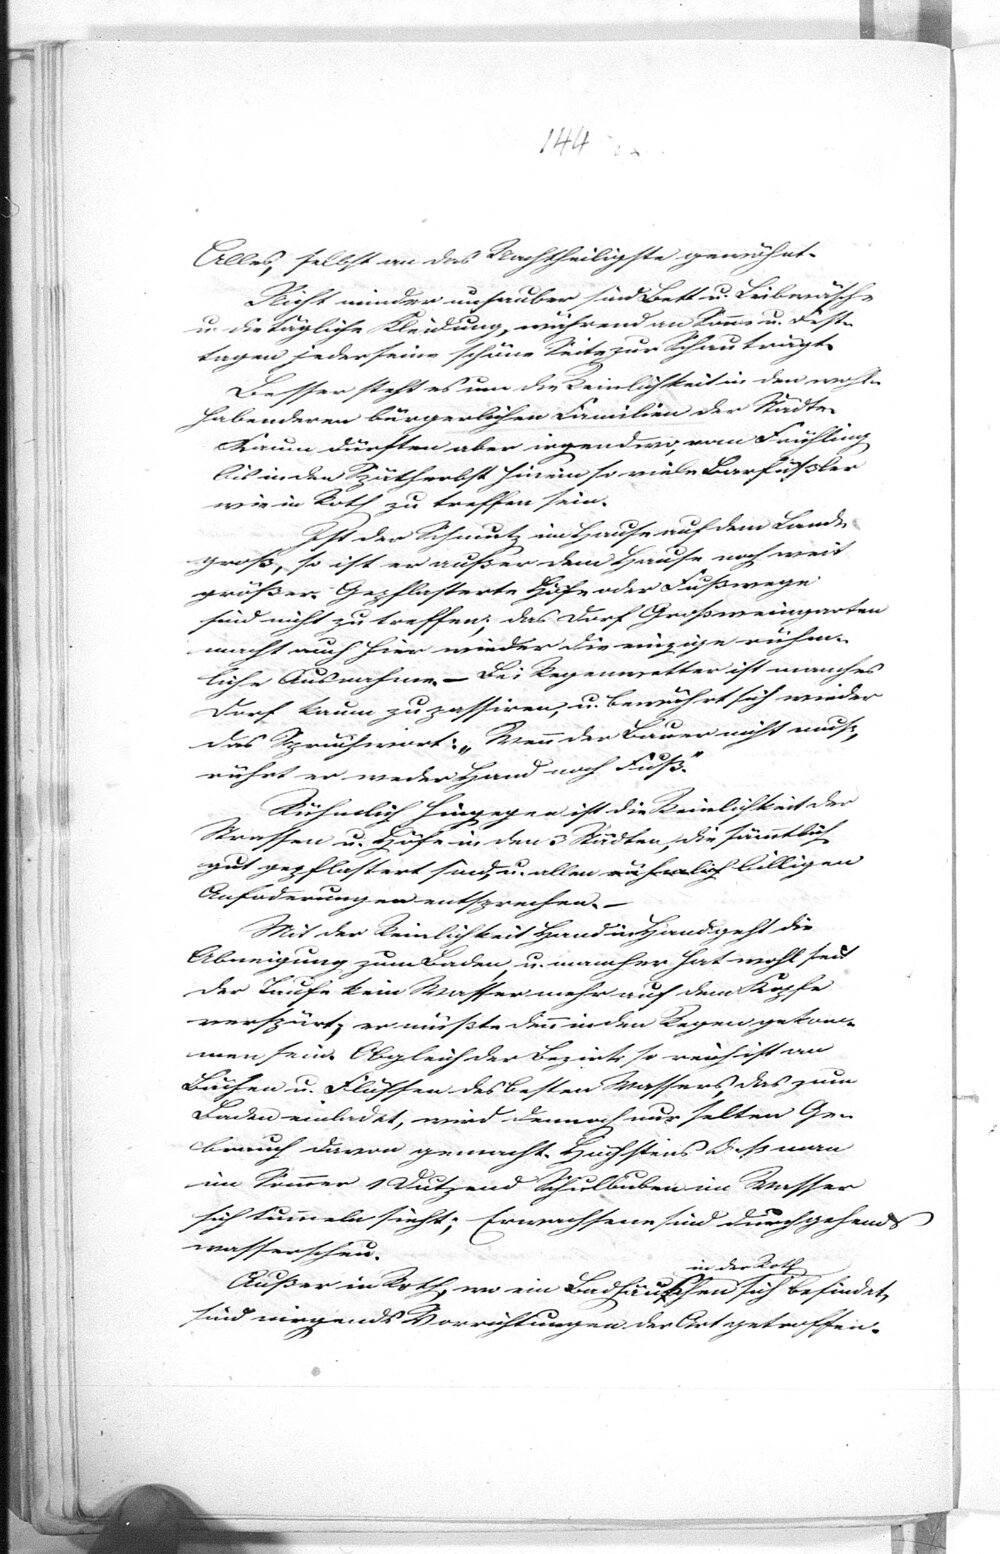 144
Alles, selbst an das Nachtheiligste gewöhnt.
Nicht minder unsauber sind Bett u. Leibwäsche
u. die tägliche Kleidung, während an Sonn u. Fest-
tagen jeder seine schöne Seite zur Schau trägt.
Besser steht es um die Reinlichkeit in den wohl-
habenderen bürgerlichen Familien der Städte.
Kaum dürften aber irgendwo, vom Frühling
bis in den Spätherbst hinein so viele Barfüßler
wie in Roth zu treffen sein.
Ist der Schmutz im Hause auf dem Lande
groß, so ist er außer dem Hause noch weit
größer. Gepflasterte Höfe oder Fußwege
sind nicht zu treffen; das Dorf Großweingarten
macht auch hier wieder die einzige rühm-
liche Ausnahme. – Bei Regenwetter ist manches
Dorf kaum zu passiren, u. bewährt sich wieder
das Sprüchwort: „Wenn der Bauer nicht muß,
rührt er weder Hand noch Fuß."
Rühmlich hingegen ist die Reinlichkeit der
Strassen u. Höfe in den 3 Städten, die sämtlich
gut gepflastert sind, u. allen billigen
Anforderungen entsprechen. –
Mit der Reinlichkeit Hand in Hand geht die
Abneigung zum Baden, u. mancher hat wohl seit
der Taufe kein Wasser mehr auf dem Kopfe
verspürt; er müßte denn in den Regen gekom-
men sein. Obgleich der Bezirk so reich ist an
Bächen u. Flüssen des besten Wassers, das zum
Baden einladet, wird dennoch nur selten Ge-
brauch davon gemacht. Höchstens daß man
im Sommer 1 Dutzend Schulbuben im Wasser
sich tummeln sieht; Erwachsene sind durchgehends
wasserscheu.
in der Roth
Außer in Roth, wo ein Badhäuschen sich befindet,
sind nirgends Vorrichtungen der Art getroffen.